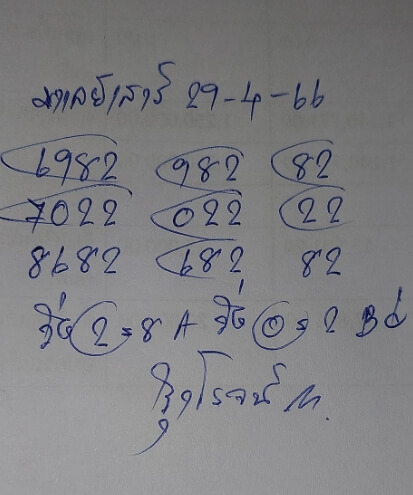 มาเลย์เสาร์ 29-4-66
6982 982 82
7022 022 22
8682 682 82
วิ่ง 2=8 A วิ่ง 0=2 B